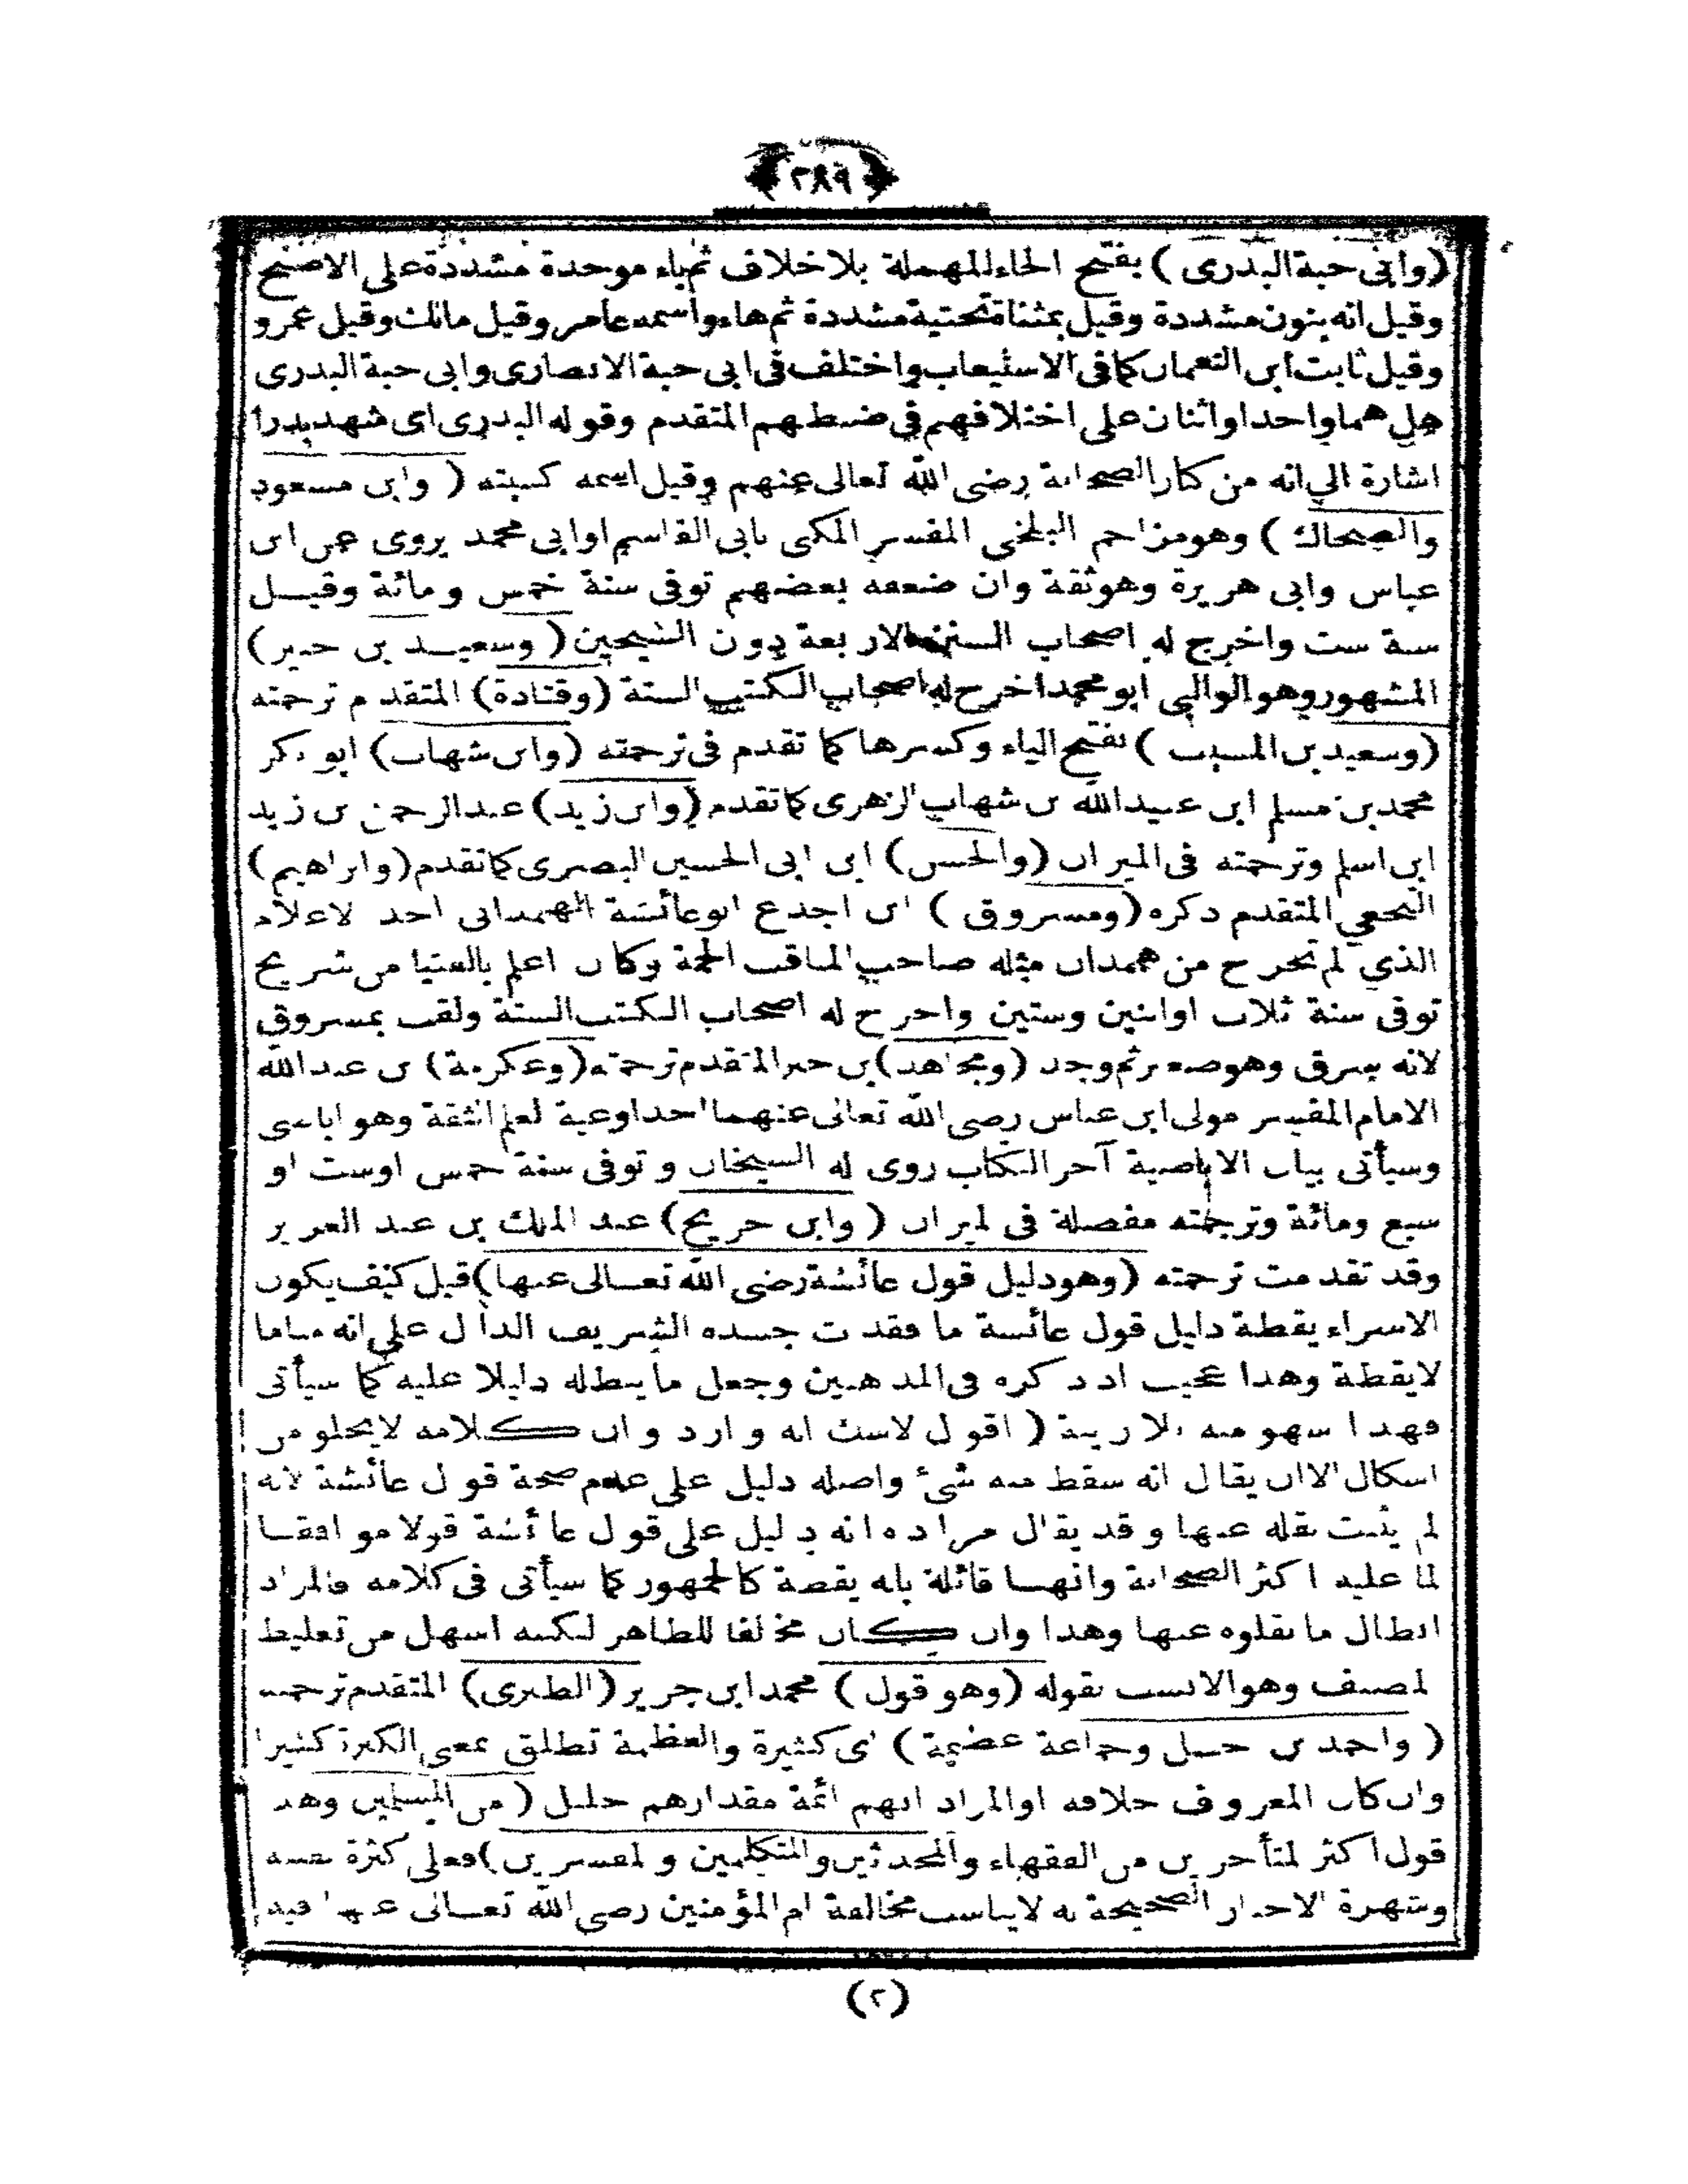 ٢٨٩
(وابى حبة البدرى) بفتح الحاء المهملة بلا خلاف ثم باء موحدة مشددة على الاصح
وقيل انه بنون مشددة وقيل بمثناة تحتية مشددة ثم هاء واسمه عامر وقيل مالك وقيل عمرو
وقيل ثابت ابن النعمان كما فى الاستيعاب واختلف فى ابى حبة الانصارى وابى حبة البدرى
هل هما واحد او اثنان على اختلافهم فى ضبطهم المتقدم وقوله البدرى اى شهد بدرا
اشارة الى انه من كبار الصحابة رضى الله تعالى عنهم وقيل اسمه كنيته (وابن مسعود
والضحاك) وهو مزاحم البلخى المفسر المكنى بابى القاسم او ابى محمد يروى عن ابن
عباس وابى هريرة وهو ثقة وان ضعفه بعضهم توفى سنة خمس ومائة وقيــل
سنة ست واخرج له اصحاب السنن الاربعة دون الشيخين (وسعيــد بن جبير)
المشهور وهو الوالبى ابو محمد اخرج له اصحاب الكتب الستة (وقتادة) المتقدم ترجمته
(وسعيد بن المسيب) بفتح الياء وكسرها كما تقدم فى ترجمته (وابن شهاب) ابو بكر
محمد بن مسلم ابن عبيد الله بن شهاب الزهرى كما تقدم (وابن زيد) عبد الرحمن بن زيد
ابن اسلم وترجمته فى الميزان (والحسن) ابن ابى الحسين البصرى كما تقدم (وابراهيم)
النخعي المتقدم ذكره (ومسروق) ابن اجدع ابو عائشة الهمدانى احد الاعلام
الذي لم تخرج من همدان مثله صاحب المناقب الجمة وكان اعلم بالفتيا من شريح
توفى سنة ثلاث او اثنين وستين واخرج له اصحاب الكتب الستة ولقب بمسروق
لانه سرق وهو صغير ثم وجد (ومجاهد) بن جبر المتقدم ترجمته (وعكرمة) بن عبد الله
الامام المفسر مولى ابن عباس رضى الله تعالى عنهما احد اوعية العلم الثقة وهو اباضى
وسيأتى بيان الاباضية آخر الكتاب روى له الشيخان وتوفى سنة خمس او ست او
سبع ومائة وترجمته مفصلة فى الميزان (وابن جريج) عبد الملك بن عبد العزيز
وقد تقدمت ترجمته (وهو دليل قول عائشة رضى الله تعــالى عنها) قيل كيف يكون
الاسراء يقظة دليل قول عائشة ما فقدت جسده الشريف الدال على انه مناما
لا يقظة وهذا عجيب اذ ذكره فى المذهبين وجعل ما يبطله دليلا عليه كما سيأتى
فهذا سهو منه بلا ريبة (اقول لاشك انه وارد وان كلامه لا يخلو من
اشكال الا ان يقال انه سقط منه شئ واصله دليل على عدم صحة قول عائشة لانه
لم يثبت نقله عنها وقد يقال مراده انه دليل على قول عائشة قولا موافقــا
لما عليه اكثر الصحابة وانهــا قائلة بانه يقظة كالجمهور كما سيأتى فى كلامه فالمراد
ابطال ما نقلوه عنها وهذا وان كان مخالفا للظاهر لكنه اسهل من تغليط
المصنف وهو الانسب بقوله (وهو قول) محمد ابن جرير (الطبرى) المتقدم ترجمته
(واحمد بن حنبل وجماعة عظيمة) اى كثيرة والعظمة تطلق بمعنى الكثرة كثيرا
وان كان المعروف خلافه او المراد انهم ائمة مقدارهم جليل (من المسلمين وهو
قول اكثر المتأخرين من الفقهاء والمحدثين والمتكلمين والمفسرين) فعلى كثرة
وشهرة الاخبار الصحيحة به لا يناسب مخالفة ام المؤمنين رضى الله تعــالى عنها فيه
(٢)